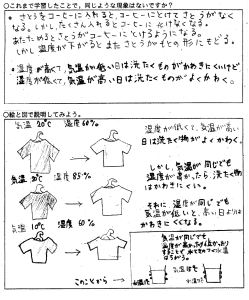 ○これまで学習したことで、同じような現象はないですか？
・さとうをコーヒーに入れるとコーヒーにとけてさとうがなく
なる。しかし、たくさん入れるとコーヒーに とけなくなる。
あたためるとさとうがコーヒーに とけるようになる。
しかし温度が下がるとまた さとうがもとの形にもどる。
・湿度が高くて、気温が低い日は洗たくものがかわきにくいけど
湿度が低くて、気温が高い日は洗たくものがよくかわく。
○絵と図で説明してみよう。
気温 20℃ 湿度 60%
気温 20℃ 湿度 85%
気温 10℃ 湿度 60%
このことから
湿度が低くて、気温が高い
日は洗たく物がよくかわく。
しかし、気温が同じでも
湿度が高かったら、洗たく物は
かわきにくい。
それに 湿度が同じでも
気温が低いと、高い日よりは
かわきにくくなる。
気温が同じでも、